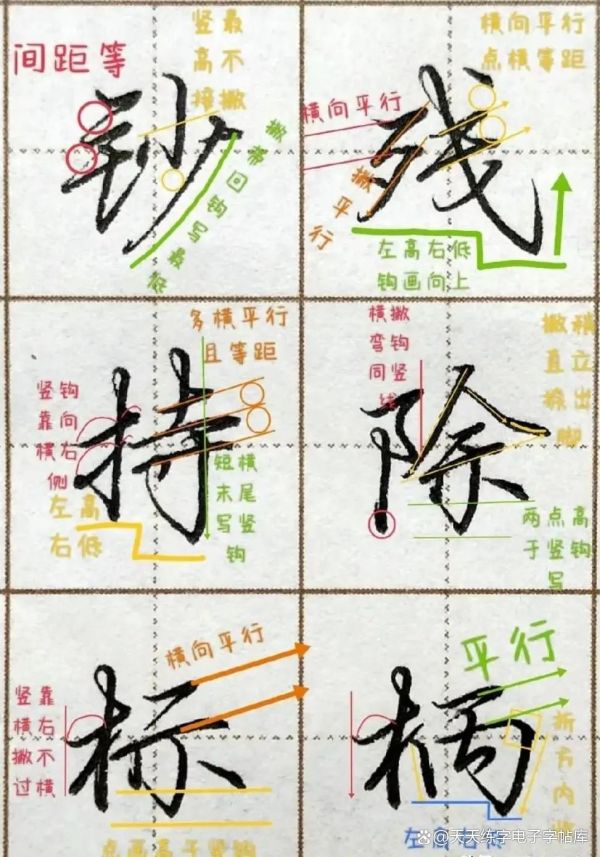 间距等
竖最
高不
接撇
钞
撇带回钩写最低
横向平行
点横等距
横向平行
撇平行
残
左高右低
钩画向上
多横平行
且等距
竖钩
靠向
横右
侧
持
短横
末尾
写竖
钩
左高
右低
横撇
弯钩
同竖
线
撇稍
直立
捺出
脚
除
两点高
于竖钩
写
横向平行
竖靠
横右
撇不
过横
标
点画高于竖钩
平行
柄
折
内
左高右低
天天练字电子字帖库